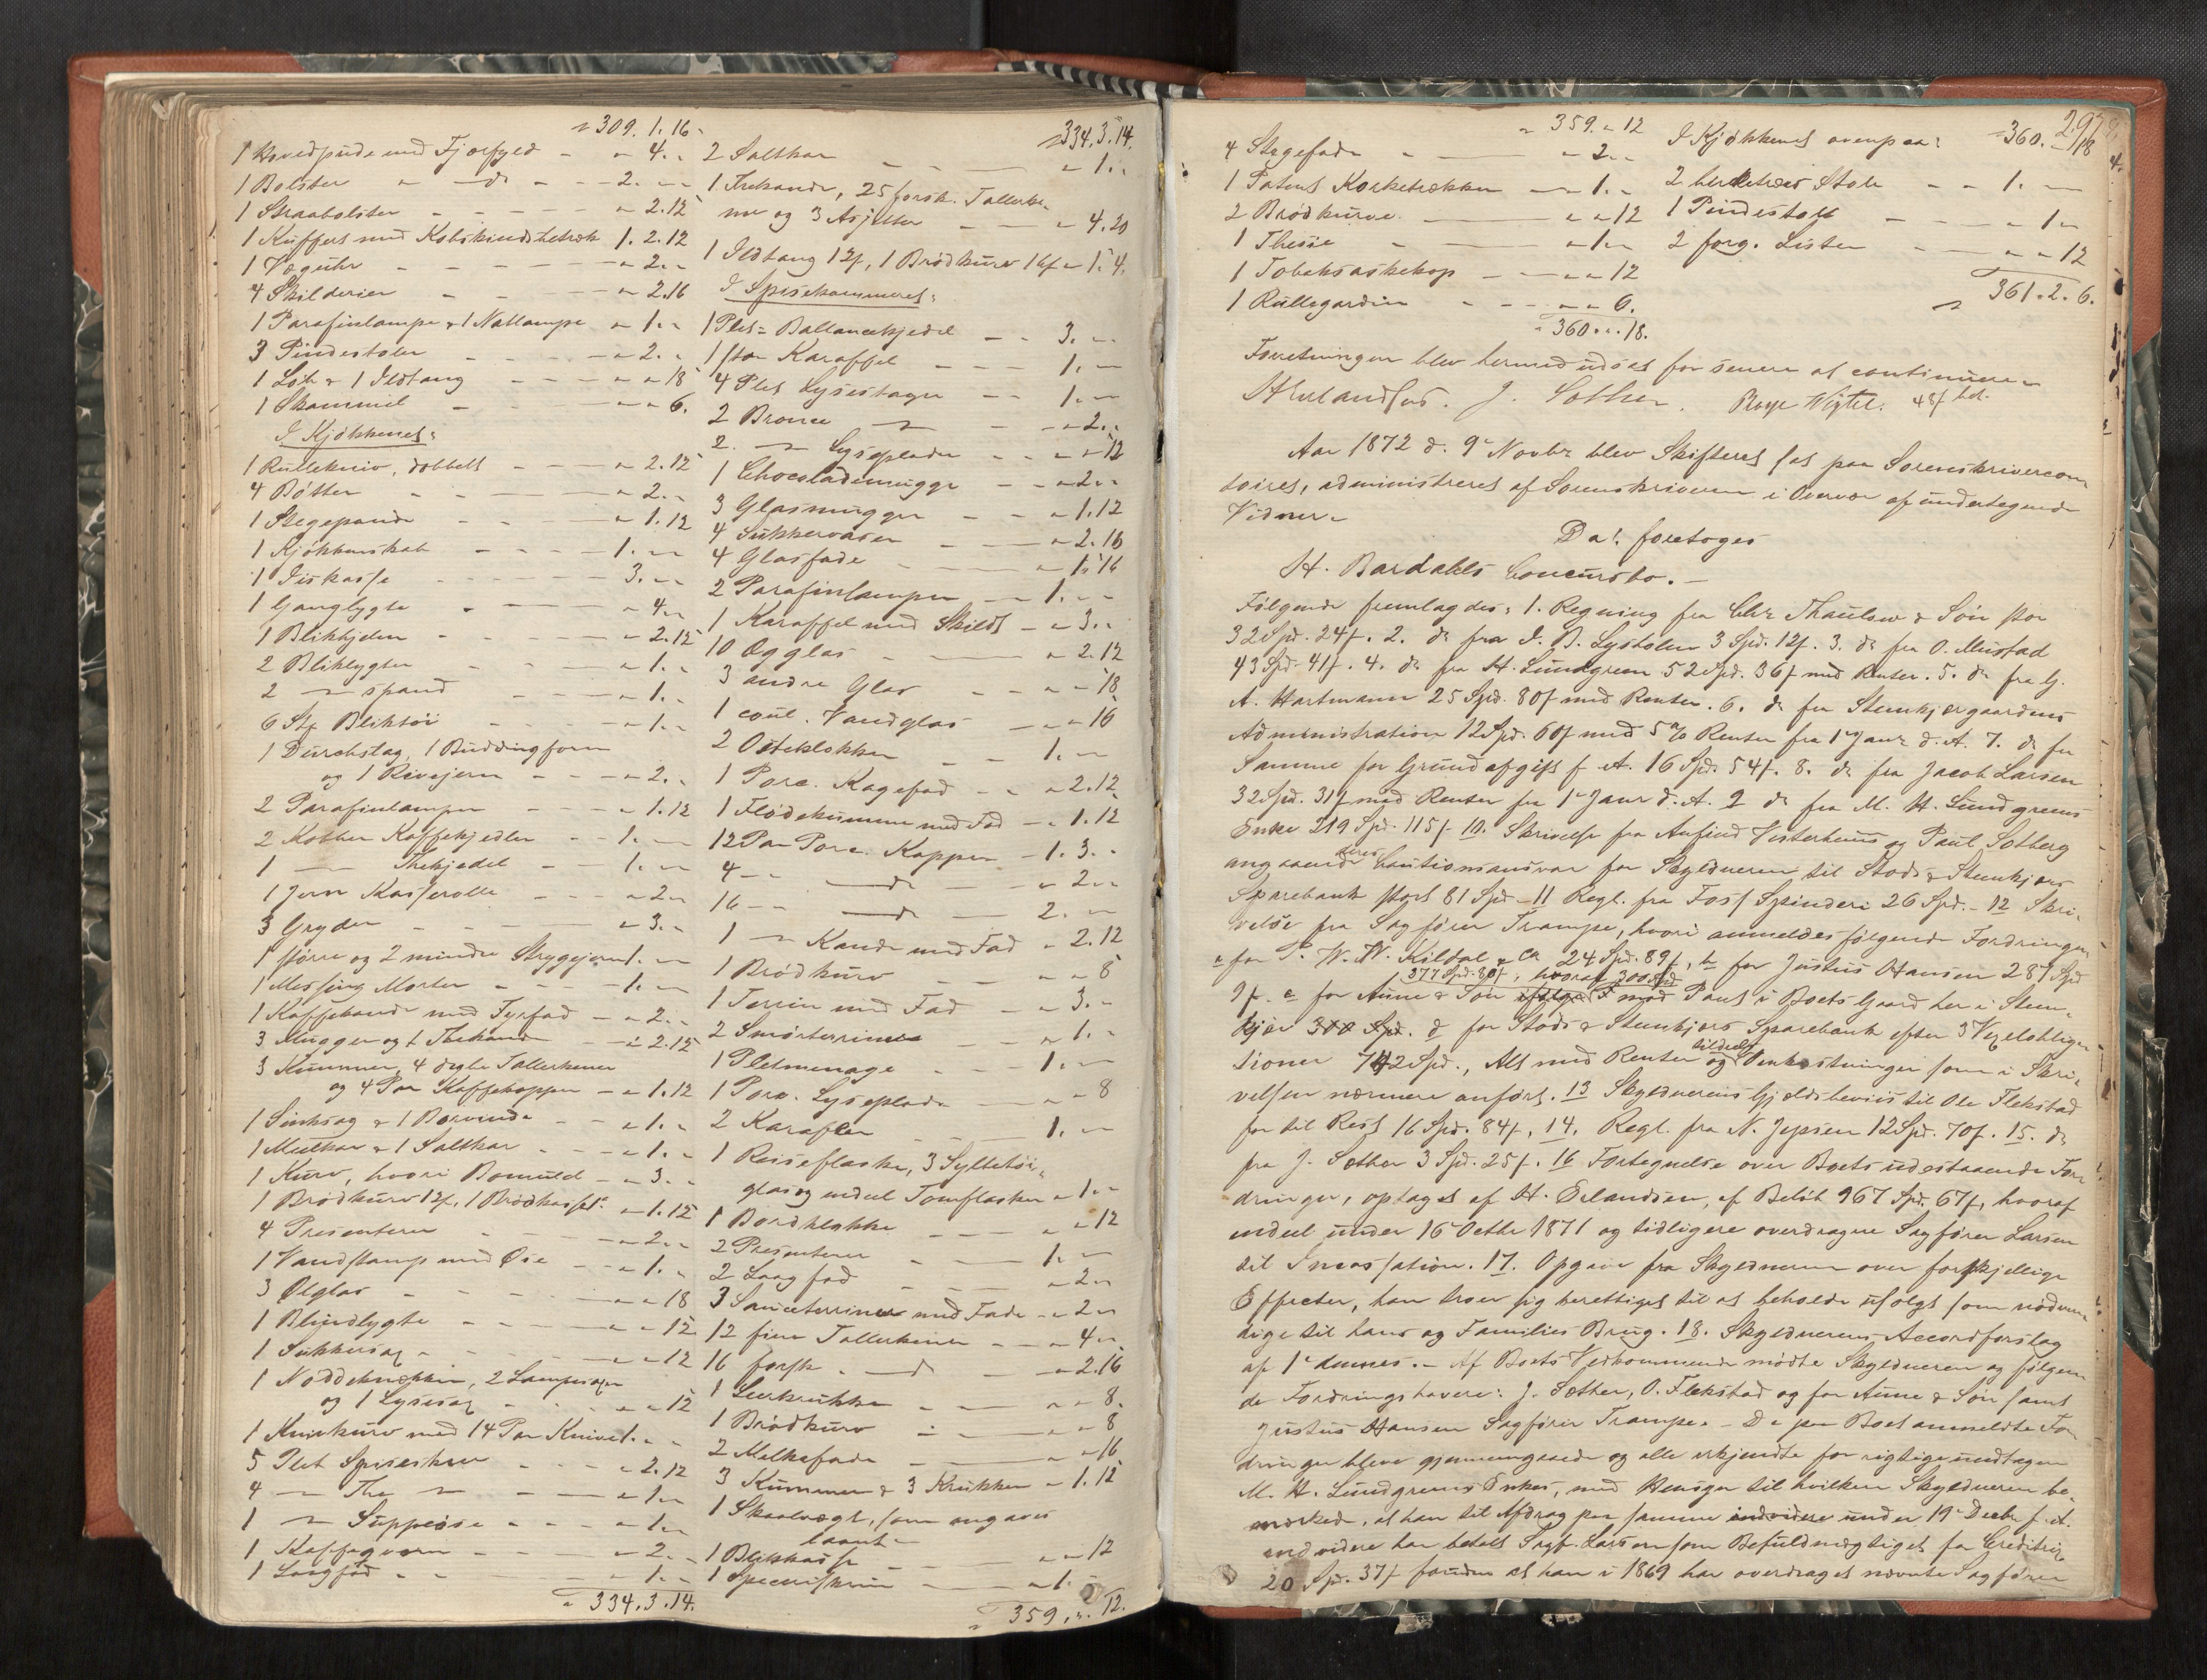 " 309. 1. 16.
1 Hovedpude med Fjærfyld - " 4. "
1 Bolster " do - - 2. "
1 Straabolster - - " 2. 12
1 Kuffert med Kobskindsbetræk 1. 2. 12
1 Væguhr - - " 2. "
4 Skilderier - - " 2. 16
1 Parafinlampe & 1 Natlampe " 1. "
3 Pindestoler - - " 2. "
1 Løb & 1 Ildtang - - " " 18
1 Skammel - - " " 6.
I Kjøkkenet:
1 Rullekniv, dobbelt - - " 2. 12
4 Bøtter - - " 2. "
1 Stegepande - - " 1. 12
1 Kjøkkenskab - - 1. " "
1 Iiskasse - - 3. " "
1 Ganglygte - - " 4. "
1 Blikkjelen - - " 2. 12
2 Bliklygter - - " 1. "
2 " spand - - " 1. "
6 Stk Bliktøi - - " 1. "
1 Durchslag, 1 Buddingform
og 1 Rivejern - - " 2. "
2 Parafinlamper - - " 1. 12
2 Kobber Kaffekjedler - 1. " "
1 — Thekjedel - 1. " "
1 Jern Kasserolle - - " 2. "
3 Gryder - - " 3. "
1 større og 2 mindre Strygejern 1. " "
1 Messing Morter - - 1. "
1 Kaffekande med Fyrfad - " 2. "
3 Mugger og 1 Thekande - " 2. 12
3 Kummer, 4 dybe Tallerkener
og 4 Par Kaffekopper - " 1. 12
1 Sinksag & 1 Borvinde - " 1. "
1 Meelkar & 1 Saltkar - " 1. "
1 Kurv, hvori Bomuld - " 3. "
1 Brødkurv 12ſ, 1 Brødkasse " 1. 12
4 Presenteer - - " 2. "
1 Vandstamp med Øse - " 1. "
3 Ølglas - - " " 18
1 Blindlygte - - " " 12
1 Sukkersax - - " " 12
1 Nøddeknækker, 2 Lampesaxe
og 1 Lysesax - - " " 12
1 Knivkurv med 14 Par Knive 1. "
5 Plet Spiseskeer - - " 2. 12
4 — The — - - " 1. "
1 — Suppeøse - - " 1. "
1 Kaffeqværn - - " 2. "
1 Langfad - - " 1. "
" 334. 3. 14.
" 334. 3. 14.
2 Saltkar - - " 1. "
1 Thekande, 25 forsk. Tallerke-
ner og 3 Asjetter - - " 4. 20
1 Ildtang 12ſ, 1 Brødkurv 16ſ " 1. 4.
I Spisekammeret:
1 Plet= Ballancekjedel - - 3. "
1 stor Karaffel - - 1. "
4 Plet Lysestager - - 1. "
2 Bronce — - - " 2. "
2. — Lyseplader - - " " 12
1 Chocolademugge - - " 2. "
3 Glasmugger - - " 1. 12
4 Sukkervaser - - " 2. 16
4 Glasfade - - " 1. 16
2 Parafinlamper - - 1. " "
1 Karaffel med Skildt - " 3. "
10 Ægglas - - " 2. 12
3 andre Glas - - " " 18
1 coul. Vandglas - " " 16
2 Osteklokker - - 1. "
1 Porc. Kagefad - - " 2. 12
1 Flødekumme med Fad - " 1. 12
12 Par Porc. Kopper - 1. 3. "
4 — — do — " 2. "
16 — — do — 2. "
1 — Kande med Fad " 2. 12
1 Brødkurv - " " 8
1 Terrin med Fad - " 3. "
2 Smørterriner - - " 1. "
1 Pletmenage - - 1. "
1 Porc. Lyseplade - " " 8
2 Karafler - - 1. "
1 Reiseflaske, 3 Syltetøi-
glas og endeel Tomflasker " 1. "
1 Bordklokke - - " " 12
2 Presenteer - - 1. "
2 Laag fad - - " 2. "
3 Sauceterriner med Fade - " 2. "
12 fiin Tallerkener - - " 4. "
16 forsk. — do — " 2. 16
1 Leerkrukke - " " 8.
1 Brødkurv - " " 8
2 Melkefade - " " 16
3 Kummer & 3 Krukker - " 1. 12
1 Skaalvægt, som angaves
laant -
1 Blikkasse - " " 12
1 Specerifkrin - " 1. "
" 359. ". 12.
297
" 359. " 12
4 Stegefade - - " 2. "
1 Patent Korketrækker - " 1. "
2 Brødkurve. - " " 12
1 Thesie - - " 1. "
1 Tobaksaskekop - " " 12
1 Rullegardin - " " 6.
" 360. ". 18.
I Kjøkkenet ovenpaa: " 360. " 18
2 birketræes Stole - - 1. "
1 Pindestoll - - " 1. "
2 forg. Lister - - " " 12
" 361. 2. 6.
Forretningen blev hermed udsat for senere at continuere.
H Erlandsen. J. Sother. Roge Vigtel. 48ſ bet.
Aar 1872 d. 9de Novbr. blev Skifteret sat paa Sorenskrivercon-
toiret, administreret af Sorenskriveren i Overvær af undertegnede
Vidner.
Da: foretoges
H. Bardahls Concursbo. —
Følgende fremlagdes: 1. Regning fra Chr. Thaulow & Søn stor
32 Spd. 24ſ. 2. do fra I. B. Lysholm 3 Spd. 12ſ. 3. do fra O. Mustad
43 Spd. 41ſ. 4. do fra H. Lundgreen 52 Spd. 36ſ med Renter. 5. do fra G.
A. Hartmann 25 Spd. 80ſ med Renter. 6. do fra Stenkjærgaardens
Administration 12 Spd. 60ſ med 5% Renter fra 1de Janr. d. A. 7. do fra
Samme for Grundafgift f. A. 16 Spd. 54ſ. 8. do fra Jacob Larsen
32 Spd. 31ſ med Renter fra 1de Janr. d. A. 9 do fra M. H. Lundgreens
Enke 219 Spd. 115ſ 10. Skrivelse fra Anfind Vesterhuus og Paul Sotberg
angaaende deres Cautionsansvar for Skyldneren til Stods & Stenkjærs
Sparebank stort 81 Spd. - 11 Regl. fra Fosf Spinderi 26 Spd. - 12 Skri-
velse fra Sagfører Trampe, hvori anmeldes følgende Fordringer
a for P. W. W. Kildal & Co 24 Spd. 89ſ, b for Justus Hansen 287 Spd
9ſ. c for Aune & Søn 377 Spd. 80ſ, hvoraf 300 Spd mod Pant i Boets Gaard her i Sten-
kjær 300 Spd. d for Stods & Stenkjærs Sparebank efter 3 Vexelobliga-
tioner 742 Spd., Alt med Renter og tildeels Omkostninger som i Skri-
velsen nærmere anført. 13 Skyldnerens Gjældsbeviis til Ole Flekstad
for til Rest 16 Spd. 84ſ, 14. Regl. fra N. Jepsen 12 Spd. 70ſ. 15. do
fra J. Sæther 3 Spd. 25ſ. 16 Fortegnelse over Boets udestaaende For-
dringer, optaget af H. Erlandsen, af Beløb 967 Spd. 67ſ, hvoraf
endeel under 16 Octbr 1871 og tidligere overdragne Sagfører Larsen
til Incassation. 17. Opgave fra Skyldneren over forskjellige
Effecter, han troer sig berettiget til at beholde usolgt som nødven-
dige til hans og Families Brug. 18. Skyldnerens Accordforslag
af 1de dennes. - Af Boets Vedkommende mødte Skyldneren og følgen-
de Fordringshavere: J. Sæther, O. Flekstad og for Aune & Søn samt
Justus Hansen Sagfører Trampe. - De paa Boet anmeldte For-
dringer bleve gjennemgaaede og alle erkjendte for rigtige undtagen
M. H. Lundgreens Enkes, med Hensyn til hvilken Skyldneren be-
mærkede, at han til Afdrag paa samme under 19de Decbr f. A.
endvidere har betalt Sagf. Larsen som Befuldmægtiget for Creditrix
20 Spd. 37ſ foruden at han i 1869 har overdraget nævnte Sagfører